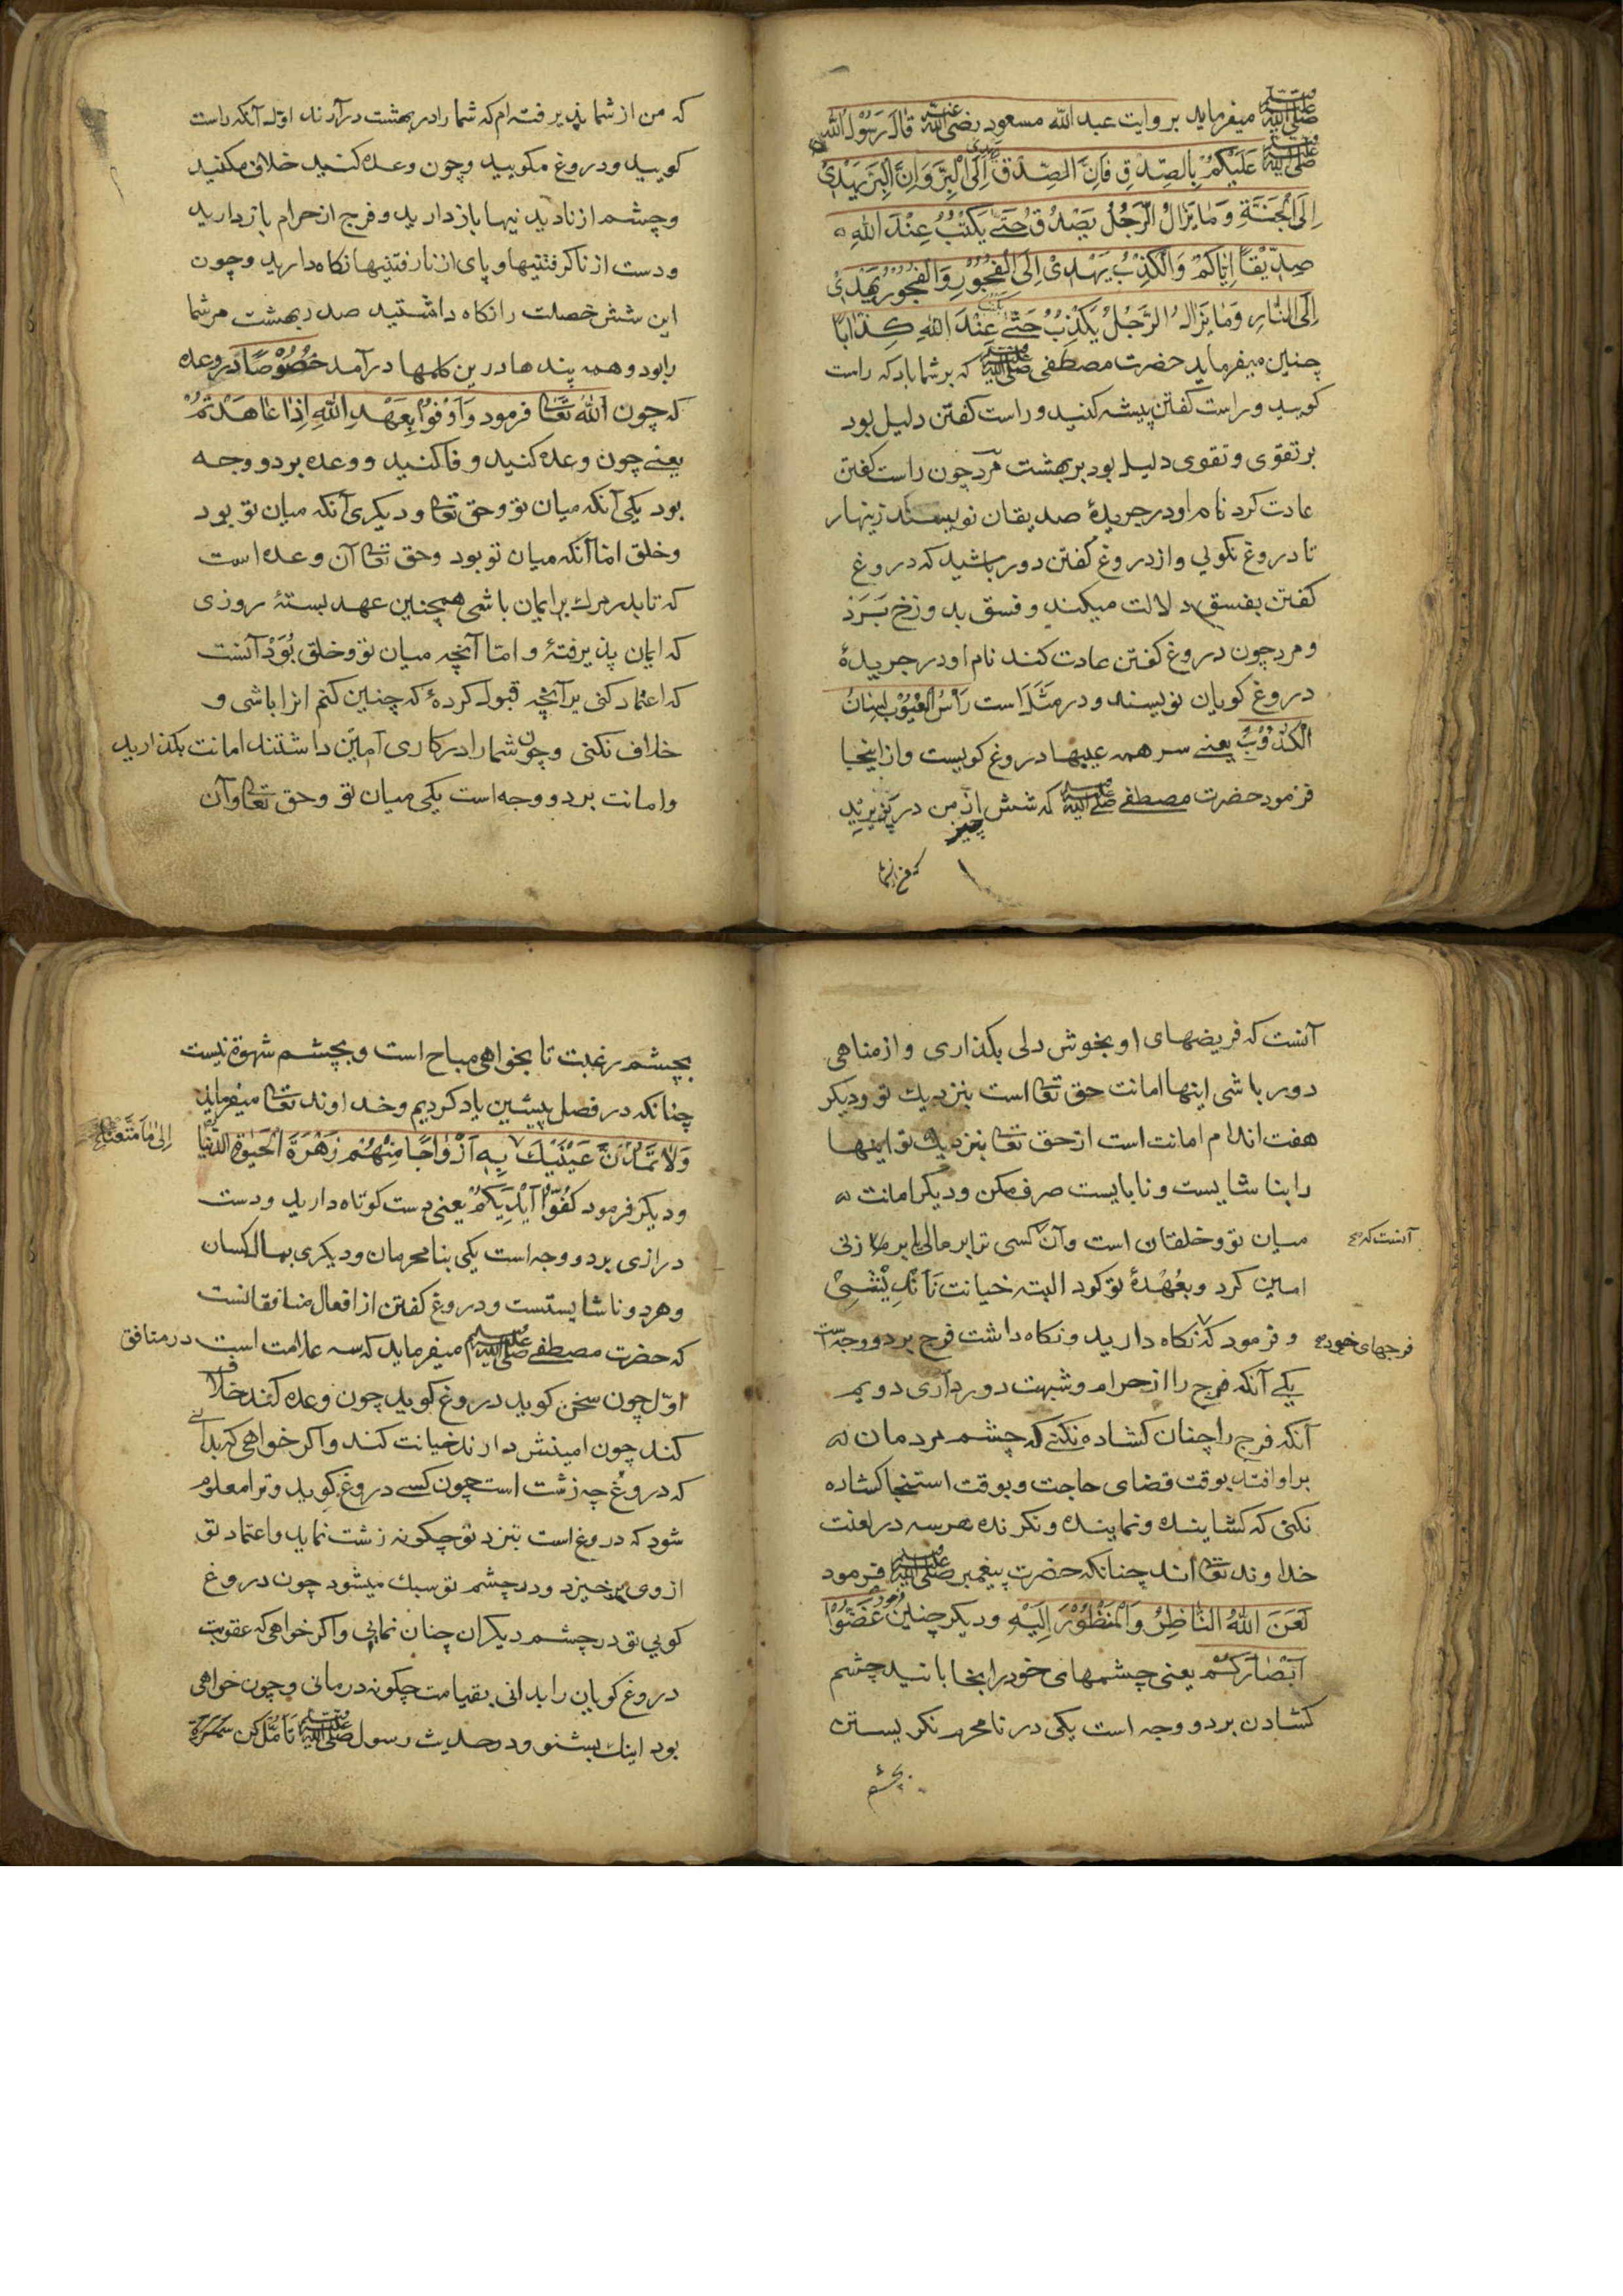 صلى الله عليه وسلم میفرماید بروایت عبد الله مسعود رضى الله عنه قَالَ رَسُوْلُ اللّٰهِ
صلى الله عليه وسلم عَلَیْکُمْ بِالصِّدْقِ فَاِنَّ الصِّدْقَ یهدی اِلَی الْبِرِّ وَاِنَّ الْبِرَّ یَهْدِیْ
اِلَی الْجَنَّةِ وَمَا یَزَالُ الرَّجُلُ یَصْدُقُ حَتّٰی یَکْتُبُ عِنْدَ اللّٰهِ
صِدِّیْقًا اِیَّاکُمْ وَالْکَذِبُ یَهْدِیْ اِلَی الْفُجُوْرِ وَالْفُجُوْرُ یَهْدِیْ
اِلَی النَّارِ وَمَا یَزَالُ الرَّجُلُ یَکْذِبُ حَتّٰی یکتب عِنْدَ اللّٰهِ کِذَابًا
چنین میفرماید حضرت مصطفی صلى الله عليه وسلم که بر شما باد که راست
کویید و راست کفتن پیشه کنید و راست کفتن دلیل بود
بر تقوی و تقوی دلیل بود بر بهشت مرد چون راست کفتن
عادت کرد نام او در جریدهٔ صدیقان نویسند زینهار
تا دروغ نکویی و از دروغ کفتن دور باشید که دروغ
کفتن بفسق دلالت میکند و فسق بدوزخ بَرَد
و مرد چون دروغ کفتن عادت کند نام او در جریدهٔ
دروغ کویان نویسند و در مَثَل است رَاْسُ الْعُیُوْبِ لِسَانُ
الْکَذُوْبِ یعنے سر همه عیبها دروغ کویست و از اینجا
فرمود حضرت مصطفے صلى الله عليه وسلم که شش چیز از من در پزیرید
که من از شما پذیرفته‌ام که شما را در بهشت درآرند اوّل آنکه راست
کویید و دروغ مکویید و چون وعده کنید خلاف مکنید
و چشم از نادیدنیها باز دارید و فرج از حرام باز دارید
و دست از ناکرفتنیها و پای از نارفتنیها نکاه دارید و چون
این شش خصلت را نکاه داشتید صدر بهشت مر شما
را بود و همه پندها درین کلمها درآمد خُصُوْصًا در وعده
که چون اللّٰه تعا فرمود وَاَوْفُوْا بِعَهْدِ اللّٰهِ اِذَا عَاهَدْتُمْ
یعنے چون وعده کنید وفا کنید و وعده بر دو وجه
بود یکی آنکه میان تو و حق تعا و دیکری آنکه میان تو بود
و خلق امّا آنکه میان تو بود و حق تعا آن وعده است
که تا بدر مرك بر ایمان باشی همچنین عهد بستهٔ روزی
که ایمان پذیرفتهٔ و امّا آنچه میان تو و خلق بُوَدْ آنست
که اعتماد کنی بر آنچه قبول کردهٔ که چنین کنم انرا باشی و
خلاف نکنی و چون شما را در کاری امین داشتند امانت بکذارید
و امانت بر دو وجه است یکی میان تو و حق تعا و آن
آنست که فریضهای او بخوش دلی بکذاری و از مناهی
دور باشی اینها امانت حق تعا است بنزدیك تو و دیکر
هفت اندام امانت است از حق تعا بنزدیك تو اینها
را بنا شایست و نابایست صرف مکن و دیکر امانت
میان تو و خلقان است و آن آنست که کسی ترا بر مالی یا بر زنی
امین کرد و بعُهْدهٔ تو کود البته خیانت نَانْدِیْشِیْ
و فرمود که فرجهای خود نکاه دارید و نکاه داشت فرج بر دو وجه است
یکے آنکه فرج را از حرام و شبهت دور داری دویم
آنکه فرج را چنان کشاده نکنے که چشم مردمان
بر او افتد بوقت قضای حاجت و بوقت استنجا کشاده
نکنی که کشاینده و نماینده و نکرنده هر سه در لعنت
خداوند تعا اند چنانکه حضرت پیغمبر صلى الله عليه وسلم فرمود
لَعَنَ اللّٰهُ النَّاظِرُ وَالْمَنْظُوْرَ اِلَیْهِ و دیکر چنین فرمود غَضُّوْا
اَبْصَارَکُمْ یعنی چشمهای خود را بخابانید چشم
کشادن بر دو وجه است یکی در نامحرم نکریستن
بچشم
بچشم رغبت تا بخواهی مباح است و بچشم شهوة نیست
چنانکه در فصل پیشین یاد کردیم و خداوند تعا میفرماید
وَلَا تَمُدَّنَّ عَیْنَیْكَ اِلٰی مَا مَتَّعْنَا بِهٖ اَزْوَاجًا مِنْهُمْ زَهْرَةَ الْحَیٰوةِ الدُّنْیَا
و دیکر فرمود کُفُّوْا اَیْدِیَکُمْ یعنی دست کوتاه دارید و دست
درازی بر دو وجه است یکی بنامحرمان و دیکری بمال کسان
و هر دو ناشایستست و دروغ کفتن از افعال منافقانست
که حضرت مصطفے صلى الله عليه وسلم میفرماید که سه علامت است در منافق
اوّل چون سخن کوید دروغ کوید چون وعده کند خلاف
کند چون امینش دارند خیانت کند و اکر خواهی که بدانے
که دروغ چه زشت است چون کسے دروغ کوید و ترا معلوم
شود که دروغ است بنزد تو چکونه زشت نماید و اعتماد تو
از وی برخیزد و در چشم تو سبك میشود چون دروغ
کویی تو در چشم دیکران چنان نمایی و اکر خواهی که عقوبت
دروغ کویان را بدانی بقیامت چکونه در مانی و چون خواهی
بود اینك بشنو و در حدیث رسول صلى الله عليه وسلم تَاَمُّل کن